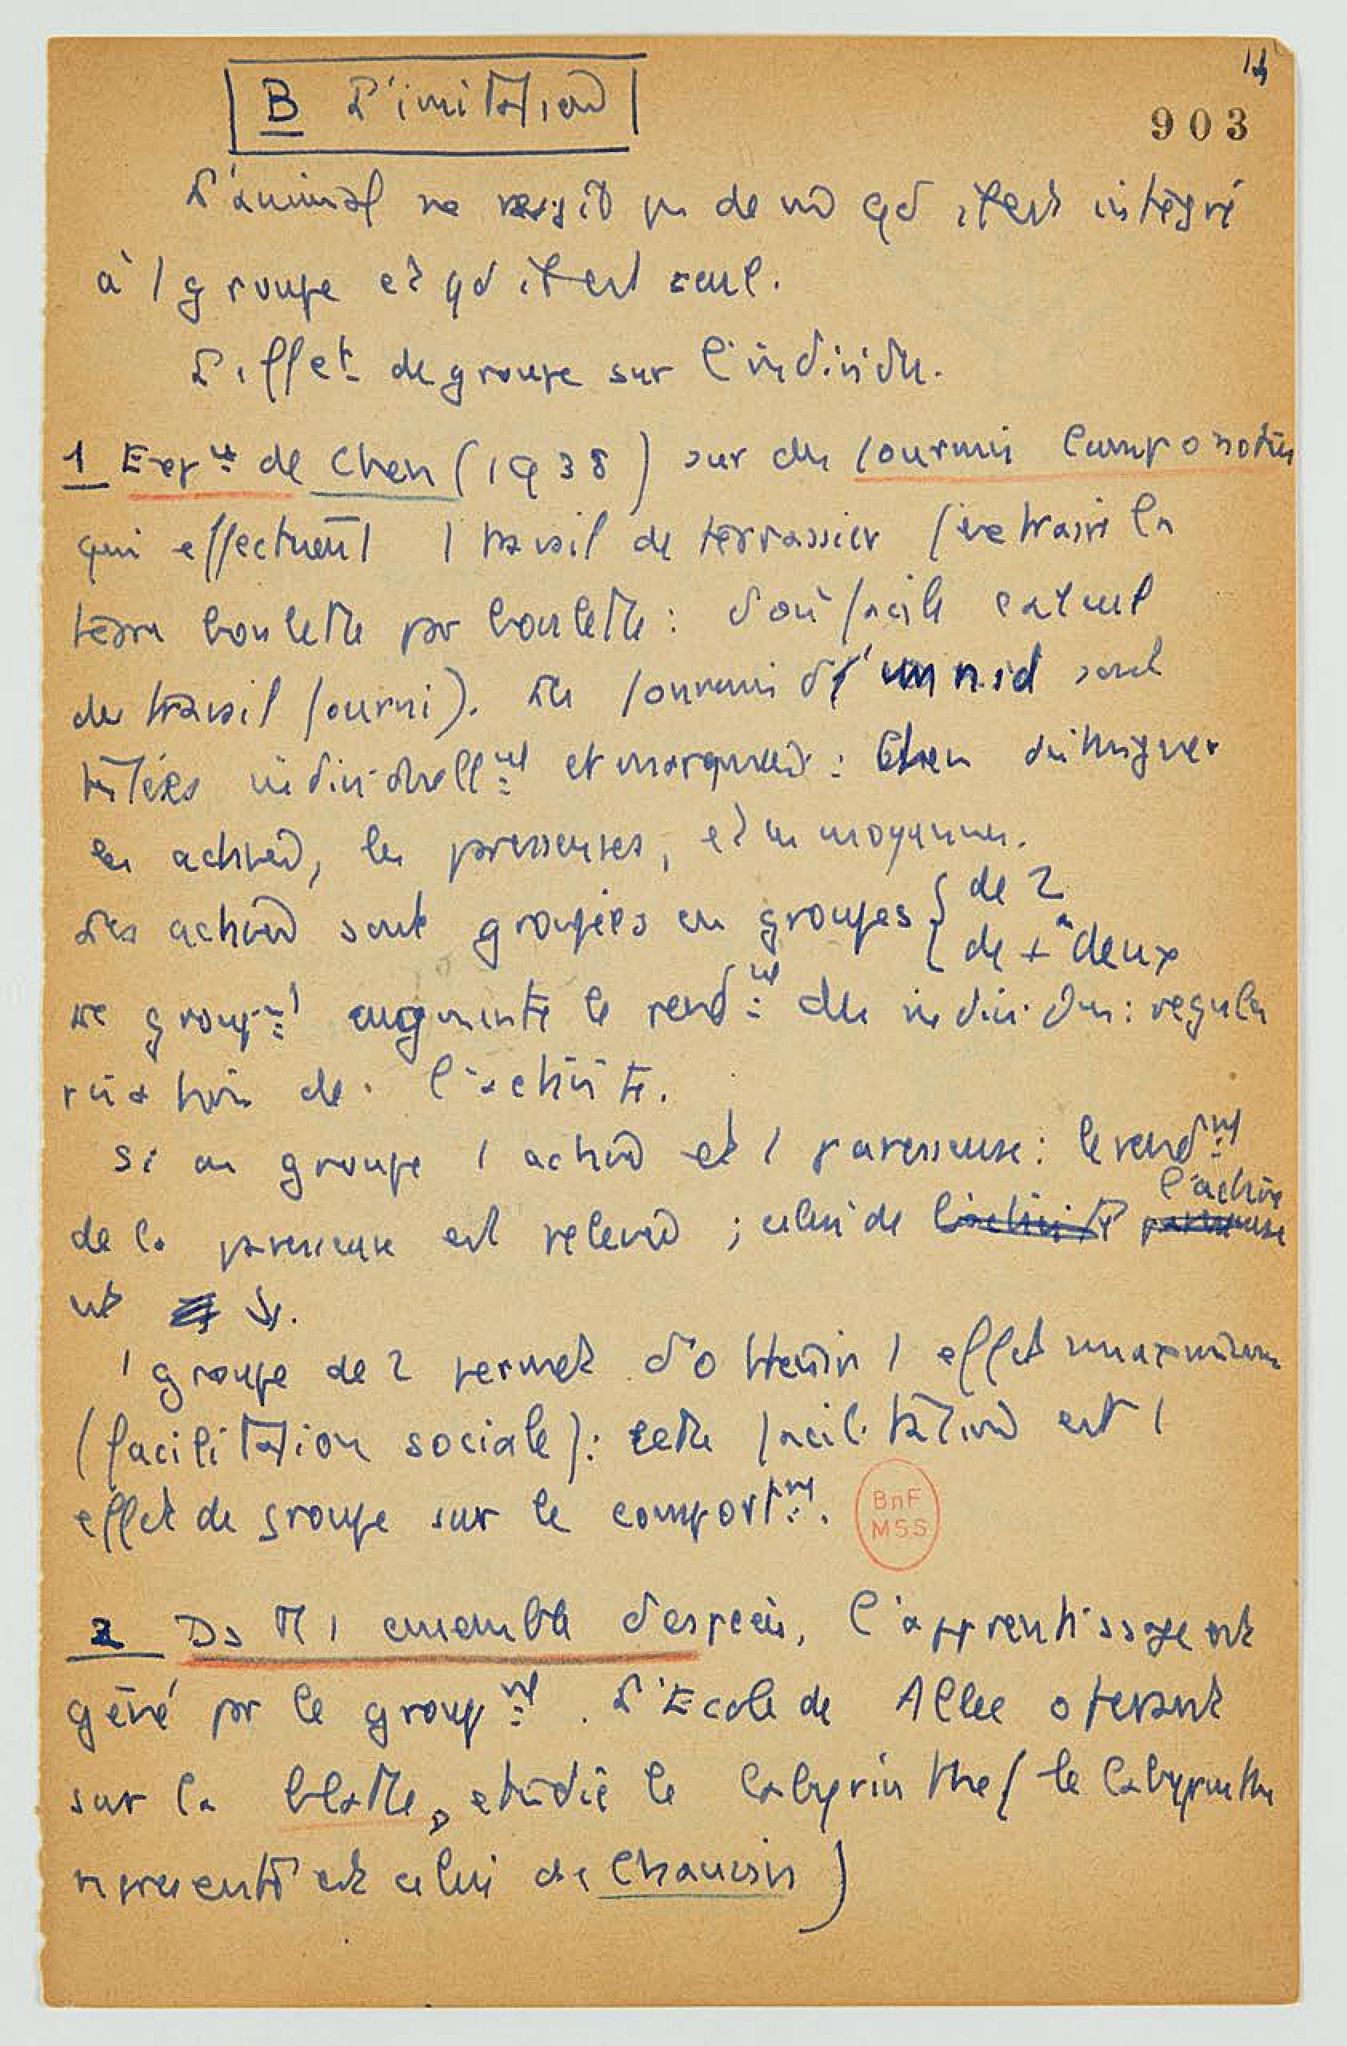 14
903
B L'imitation
L'animal ne réagit pas de m̂ qd il est intégré
à 1 groupe et qd il est seul.
L'effet de groupe sur l'individu.
1 Exp^ce de Chen (1938) sur des fourmis Camponotus
qui effectuent 1 travail de terrassier (extraire la
terre boulette par boulette : d'où facile calcul
du travail fourni). Les fourmis d'un nid sont
isolées individuell^nt et marquées : Chen distingue
les actives, les paresseuses, et les moyennes.
Les actives sont groupées en groupes { de 2
de + de deux
Le group^nt augmente le rend^nt des individus : régula
risation de l'activité.
Si on groupe 1 active et 1 paresseuse : le rend^nt
de la paresseuse est relevé ; celui de l'activité paresseuse l'active
est ↘.
1 groupe de 2 permet d'obtenir 1 effet maximum
(facilitation sociale) : cette facilitation est 1
effet de groupe sur le comport^nt.
BnF
MSS
2 Ds tt 1 ensemble d'espèces, l'apprentissage est
gêné par le group^nt. L'Ecole de Allee opérant
sur la blatte, étudie le labyrinthe (le labyrinthe
représenté est celui de Chauvin)